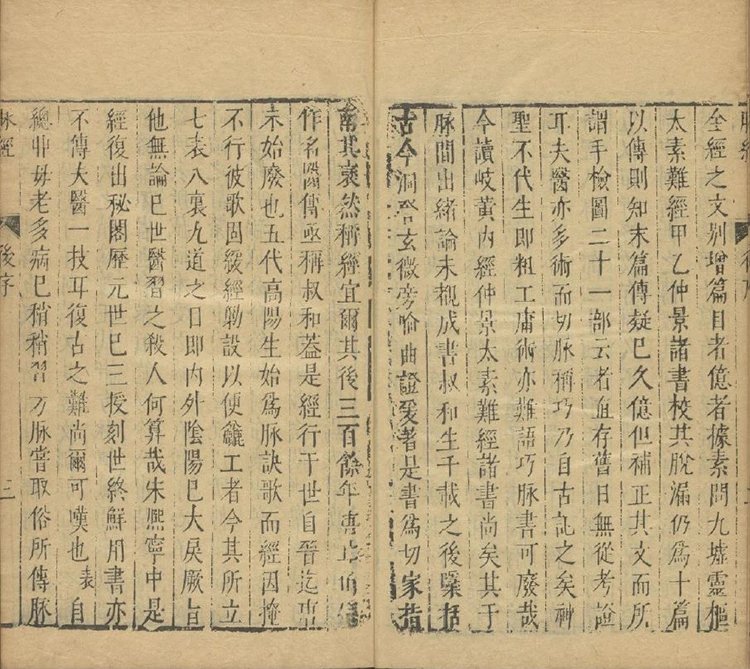 脉經
全經之文別增篇目者億者據素問九墟靈樞
太素難經甲乙仲景諸書校其脫漏仍為十篇
以傳則知末篇傳疑已久億但補正其文而所
謂手檢圖二十一部云者亙存舊日無從考證
耳夫醫亦多術而切脉稱巧乃自古記之矣神
聖不代生即粗工庸術亦難語巧脉書可廢哉
今讀岐黃內經仲景太素難經諸書尚矣其于
脉間出緒論未覩成書叔和生千載之後櫽括
古今洞晉玄微旁喻曲證爰著是書為切家指
南其裒然稱經宜爾其後三百餘年
作名醫傳亟稱叔和蓋是經行于世自晉迄唐
未始廢也五代高陽生始為脉訣歌而經因掩
不行彼歌固綴經勦設以便麤工者今其所立
七表八裏九道之目即內外陰陽已大戾厥旨
他無論已世醫習之殺人何算哉宋熙寧中是
經復出秘閣歷元世已三授刻世終鮮用書亦
不傳大醫一技耳復古之難尚爾可嘆也表自
總丱毋老多病已稍稍習方脉嘗取俗所傳脉
脉經 後序 三